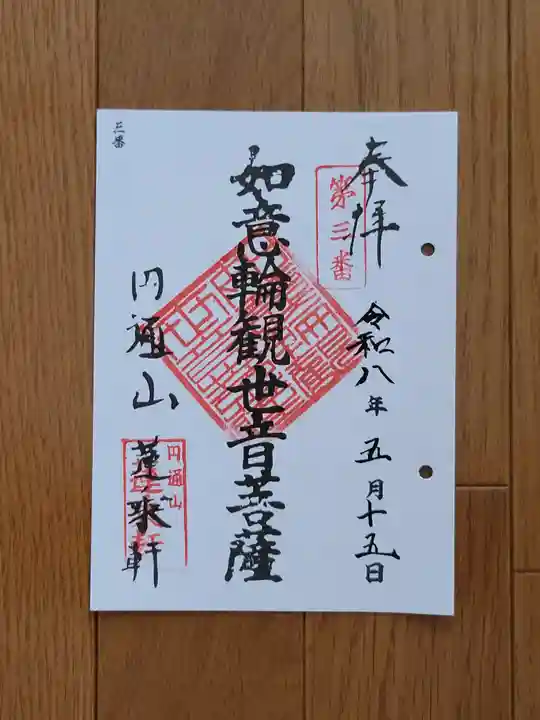 奉拝
第三番
令和八年五月十五日
如意輪観世音菩薩
円通山
蓬来軒
円通山
三番